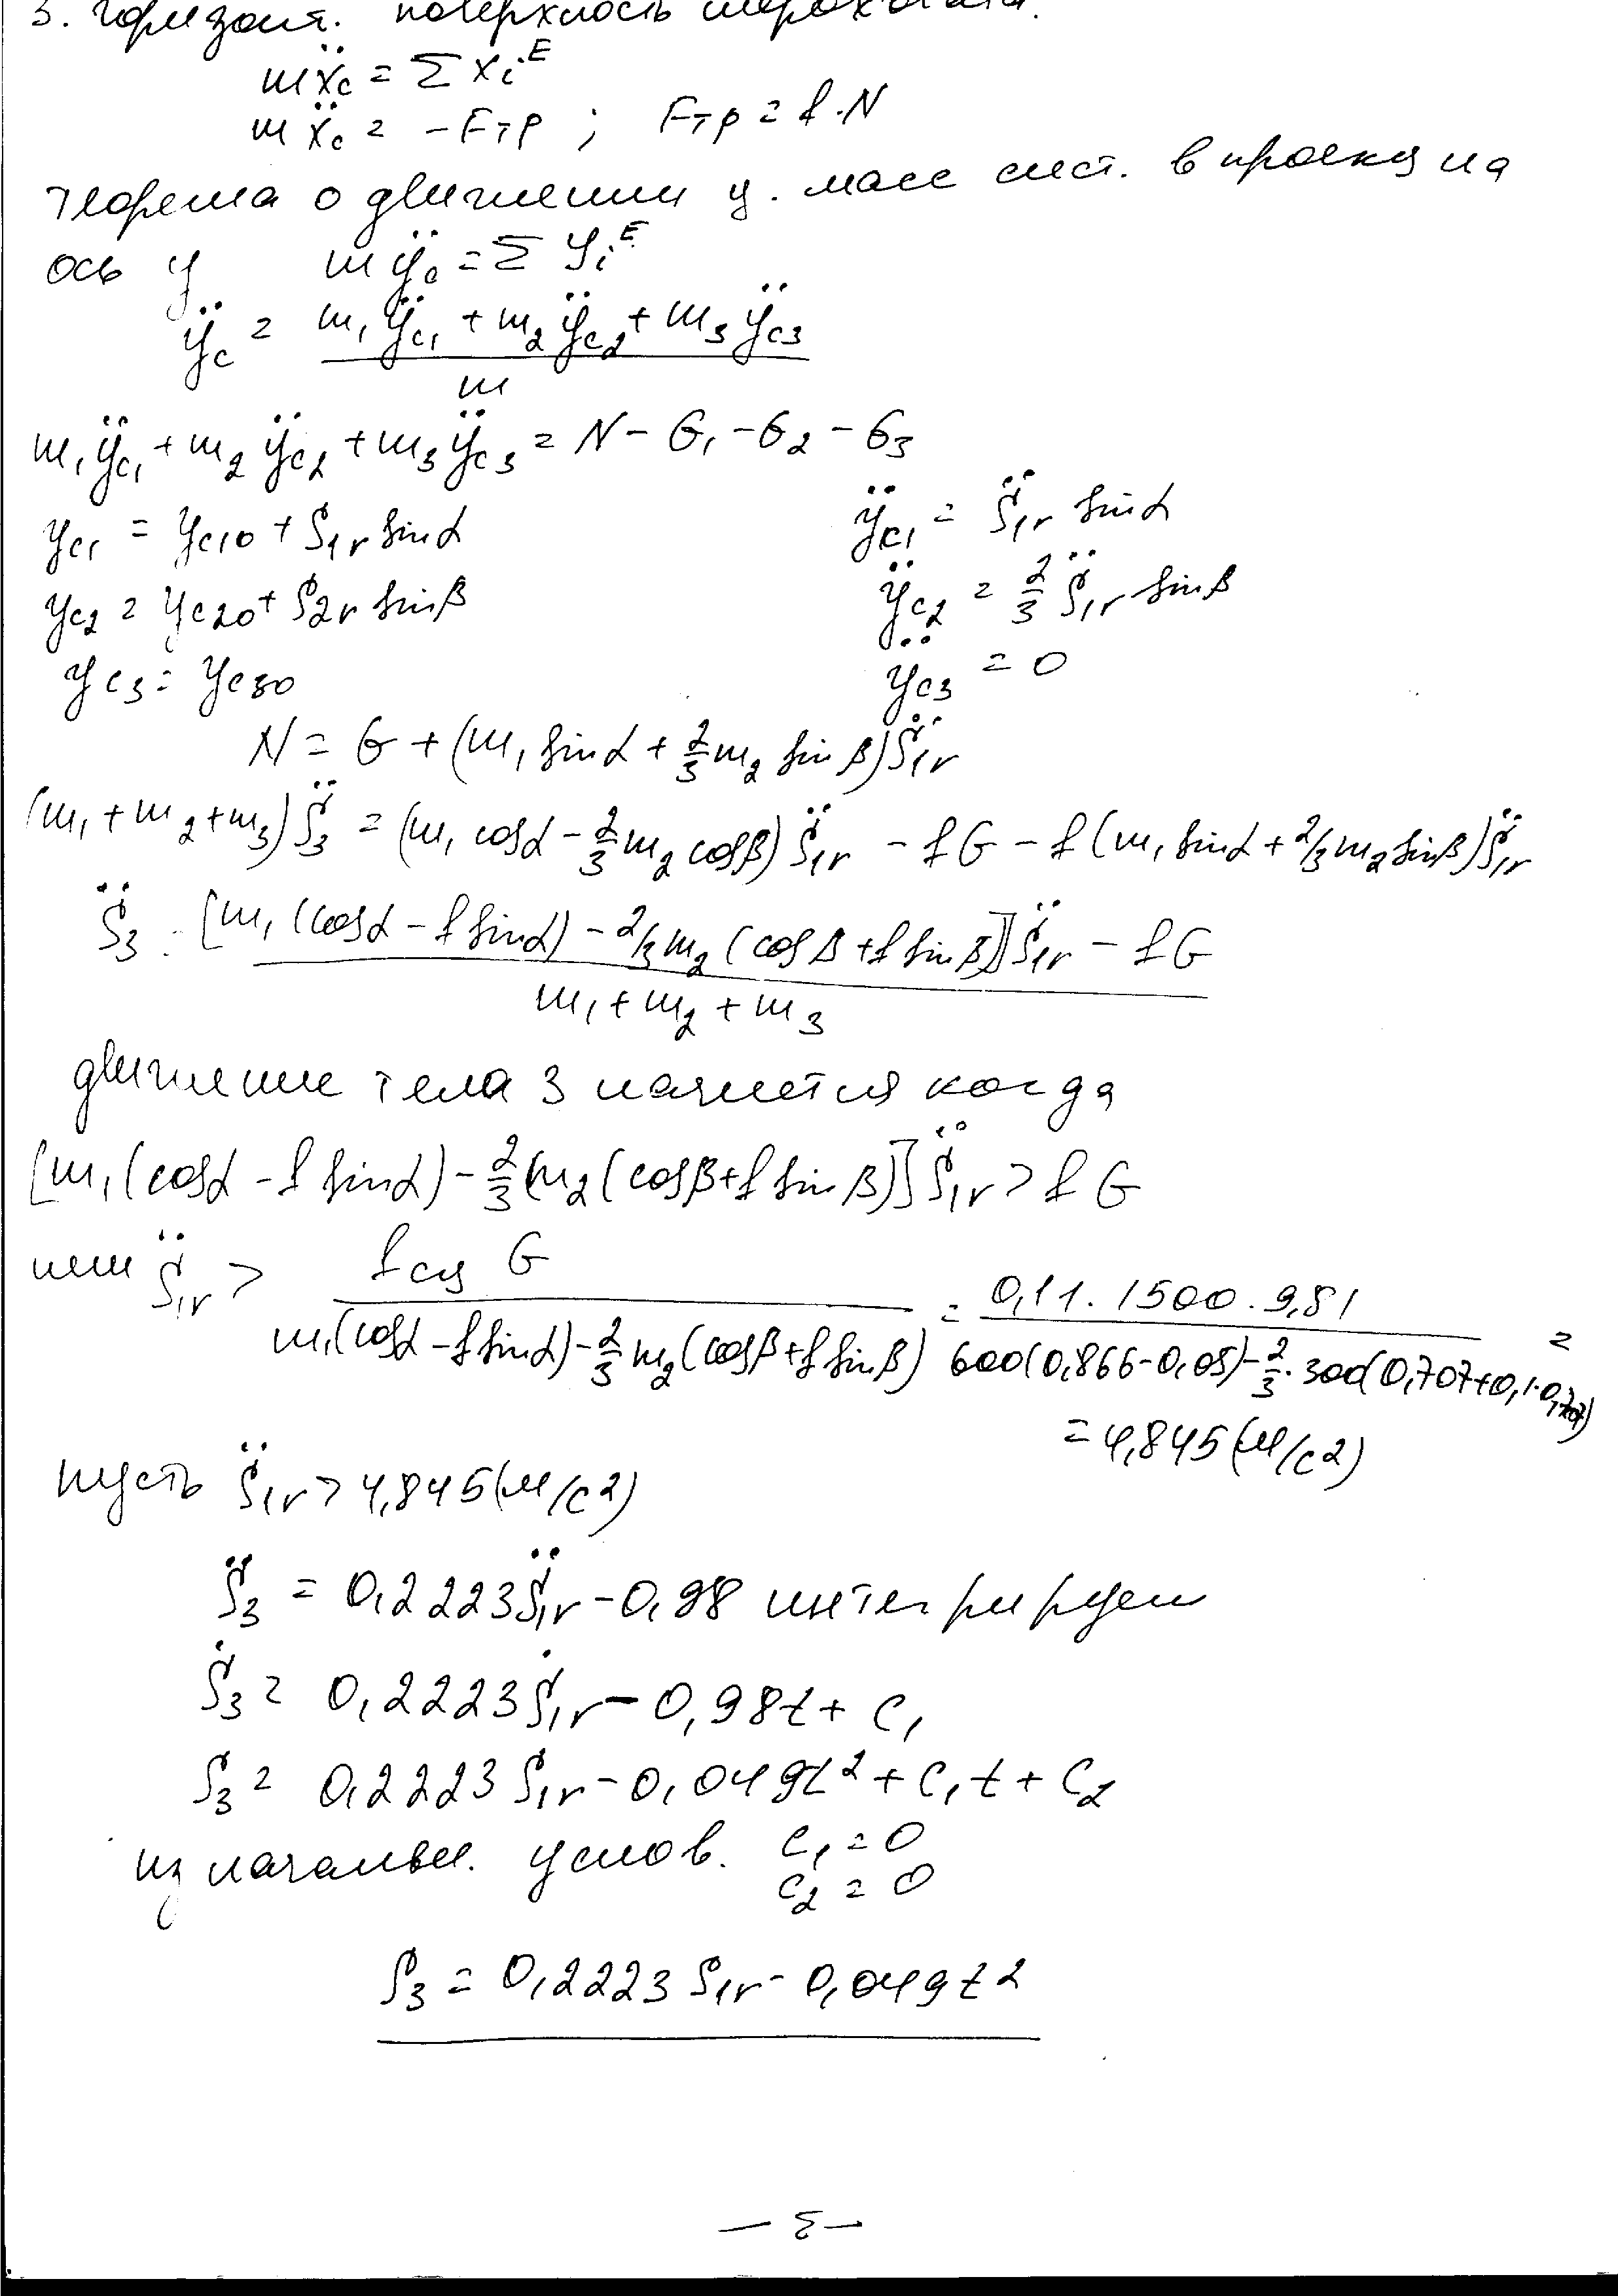 3. горизонт. поверхность шероховата.
mẍc = Σ Xi^E
mẍc = −Fтр ; Fтр = f·N
теорема о движении ц. масс сист. в проекц на
ось y mÿc = Σ Yi^E
ÿc = (m₁ÿc₁ + m₂ÿc₂ + m₃ÿc₃) / m
m₁ÿc₁ + m₂ÿc₂ + m₃ÿc₃ = N − G₁ − G₂ − G₃
yc₁ = yc₁₀ + S₁r sinα ÿc₁ = S̈₁r sinα
yc₂ = yc₂₀ + S₂r sinβ ÿc₂ = 2/3 S̈₁r sinβ
yc₃ = yc₃₀ ÿc₃ = 0
N = G + (m₁ sinα + 2/3 m₂ sinβ) S̈₁r
(m₁ + m₂ + m₃) S̈₃ = (m₁ cosα − 2/3 m₂ cosβ) S̈₁r − fG − f(m₁ sinα + 2/3 m₂ sinβ) S̈₁r
S̈₃ = ([m₁(cosα − f sinα) − 2/3 m₂(cosβ + f sinβ)] S̈₁r − fG) / (m₁ + m₂ + m₃)
движение тела 3 начнется когда
[m₁(cosα − f sinα) − 2/3 m₂(cosβ + f sinβ)] S̈₁r > fG
или S̈₁r > fсц G / (m₁(cosα − f sinα) − 2/3 m₂(cosβ + f sinβ)) = 0,11·1500·9,81 / (600(0,866−0,05) − 2/3·300(0,707+0,1·0,707)) =
= 4,845 (м/с2)
пусть S̈₁r > 4,845 (м/с2)
S̈₃ = 0,2223 S̈₁r − 0,98 интегрируем
Ṡ₃ = 0,2223 Ṡ₁r − 0,98t + C₁
S₃ = 0,2223 S₁r − 0,049t² + C₁t + C₂
из начальн. услов. C₁ = 0
C₂ = 0
S₃ = 0,2223 S₁r − 0,049t²
— 3 —